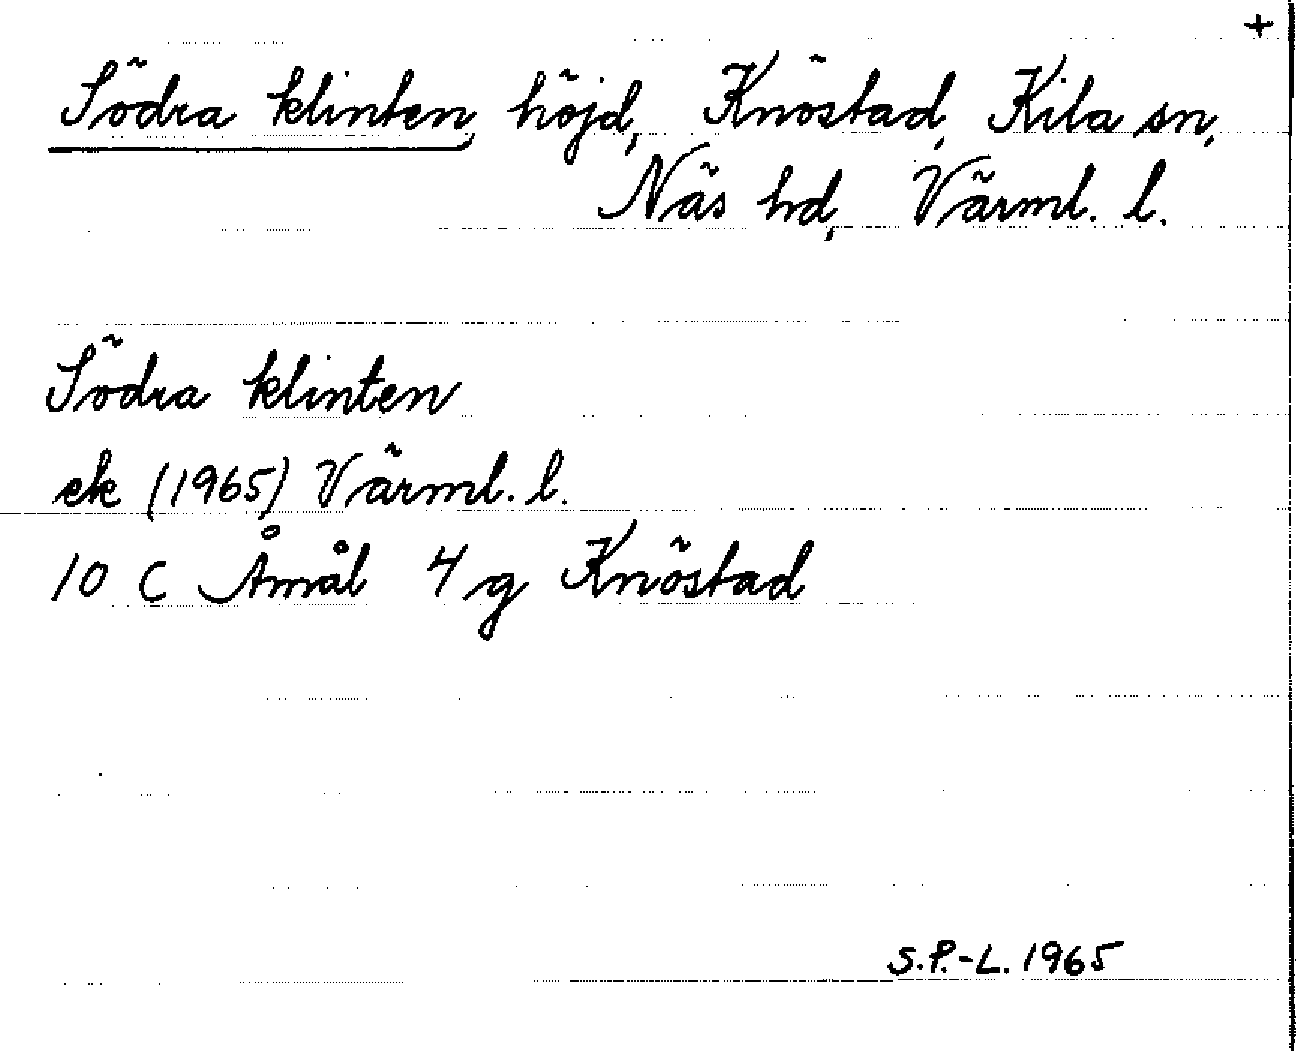 +
Södra klinten, höjd, Knöstad, Kila sn,
Näs hd, Värml. l.
Södra klinten
ek (1965) Värml. l.
10 C Åmål 4 g Knöstad
S.P.-L. 1965